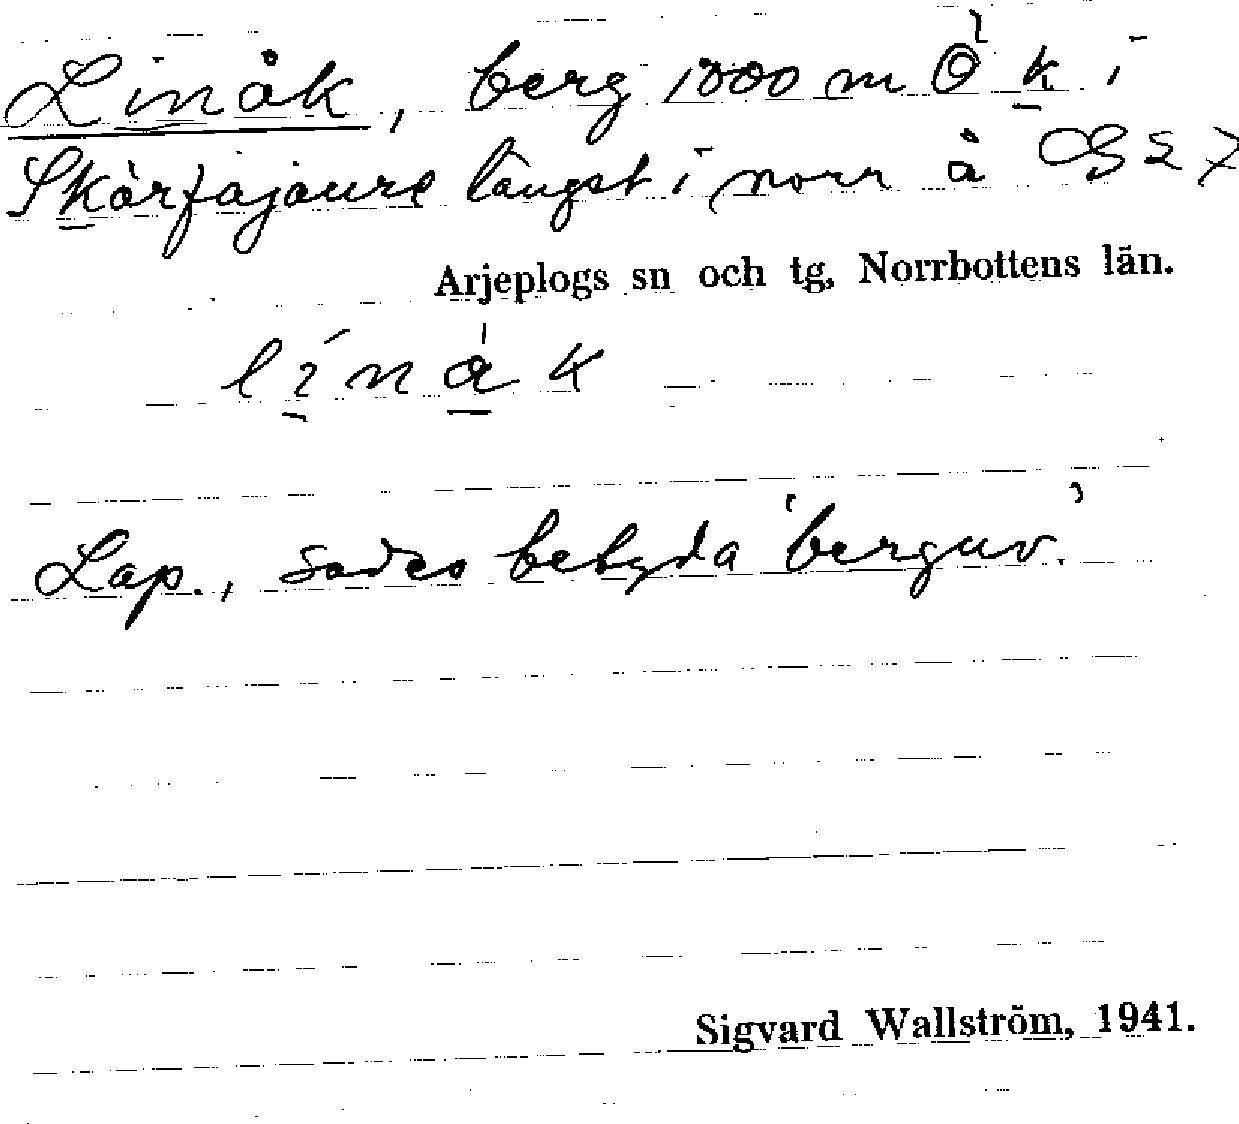 Linåk, berg 1000 m Ö k i
Skårfajaure längst i norr å GS 27
Arjeplogs sn och tg, Norrbottens län.
línák
Lap., sades betyda 'berguv.'
Sigvard Wallström, 1941.